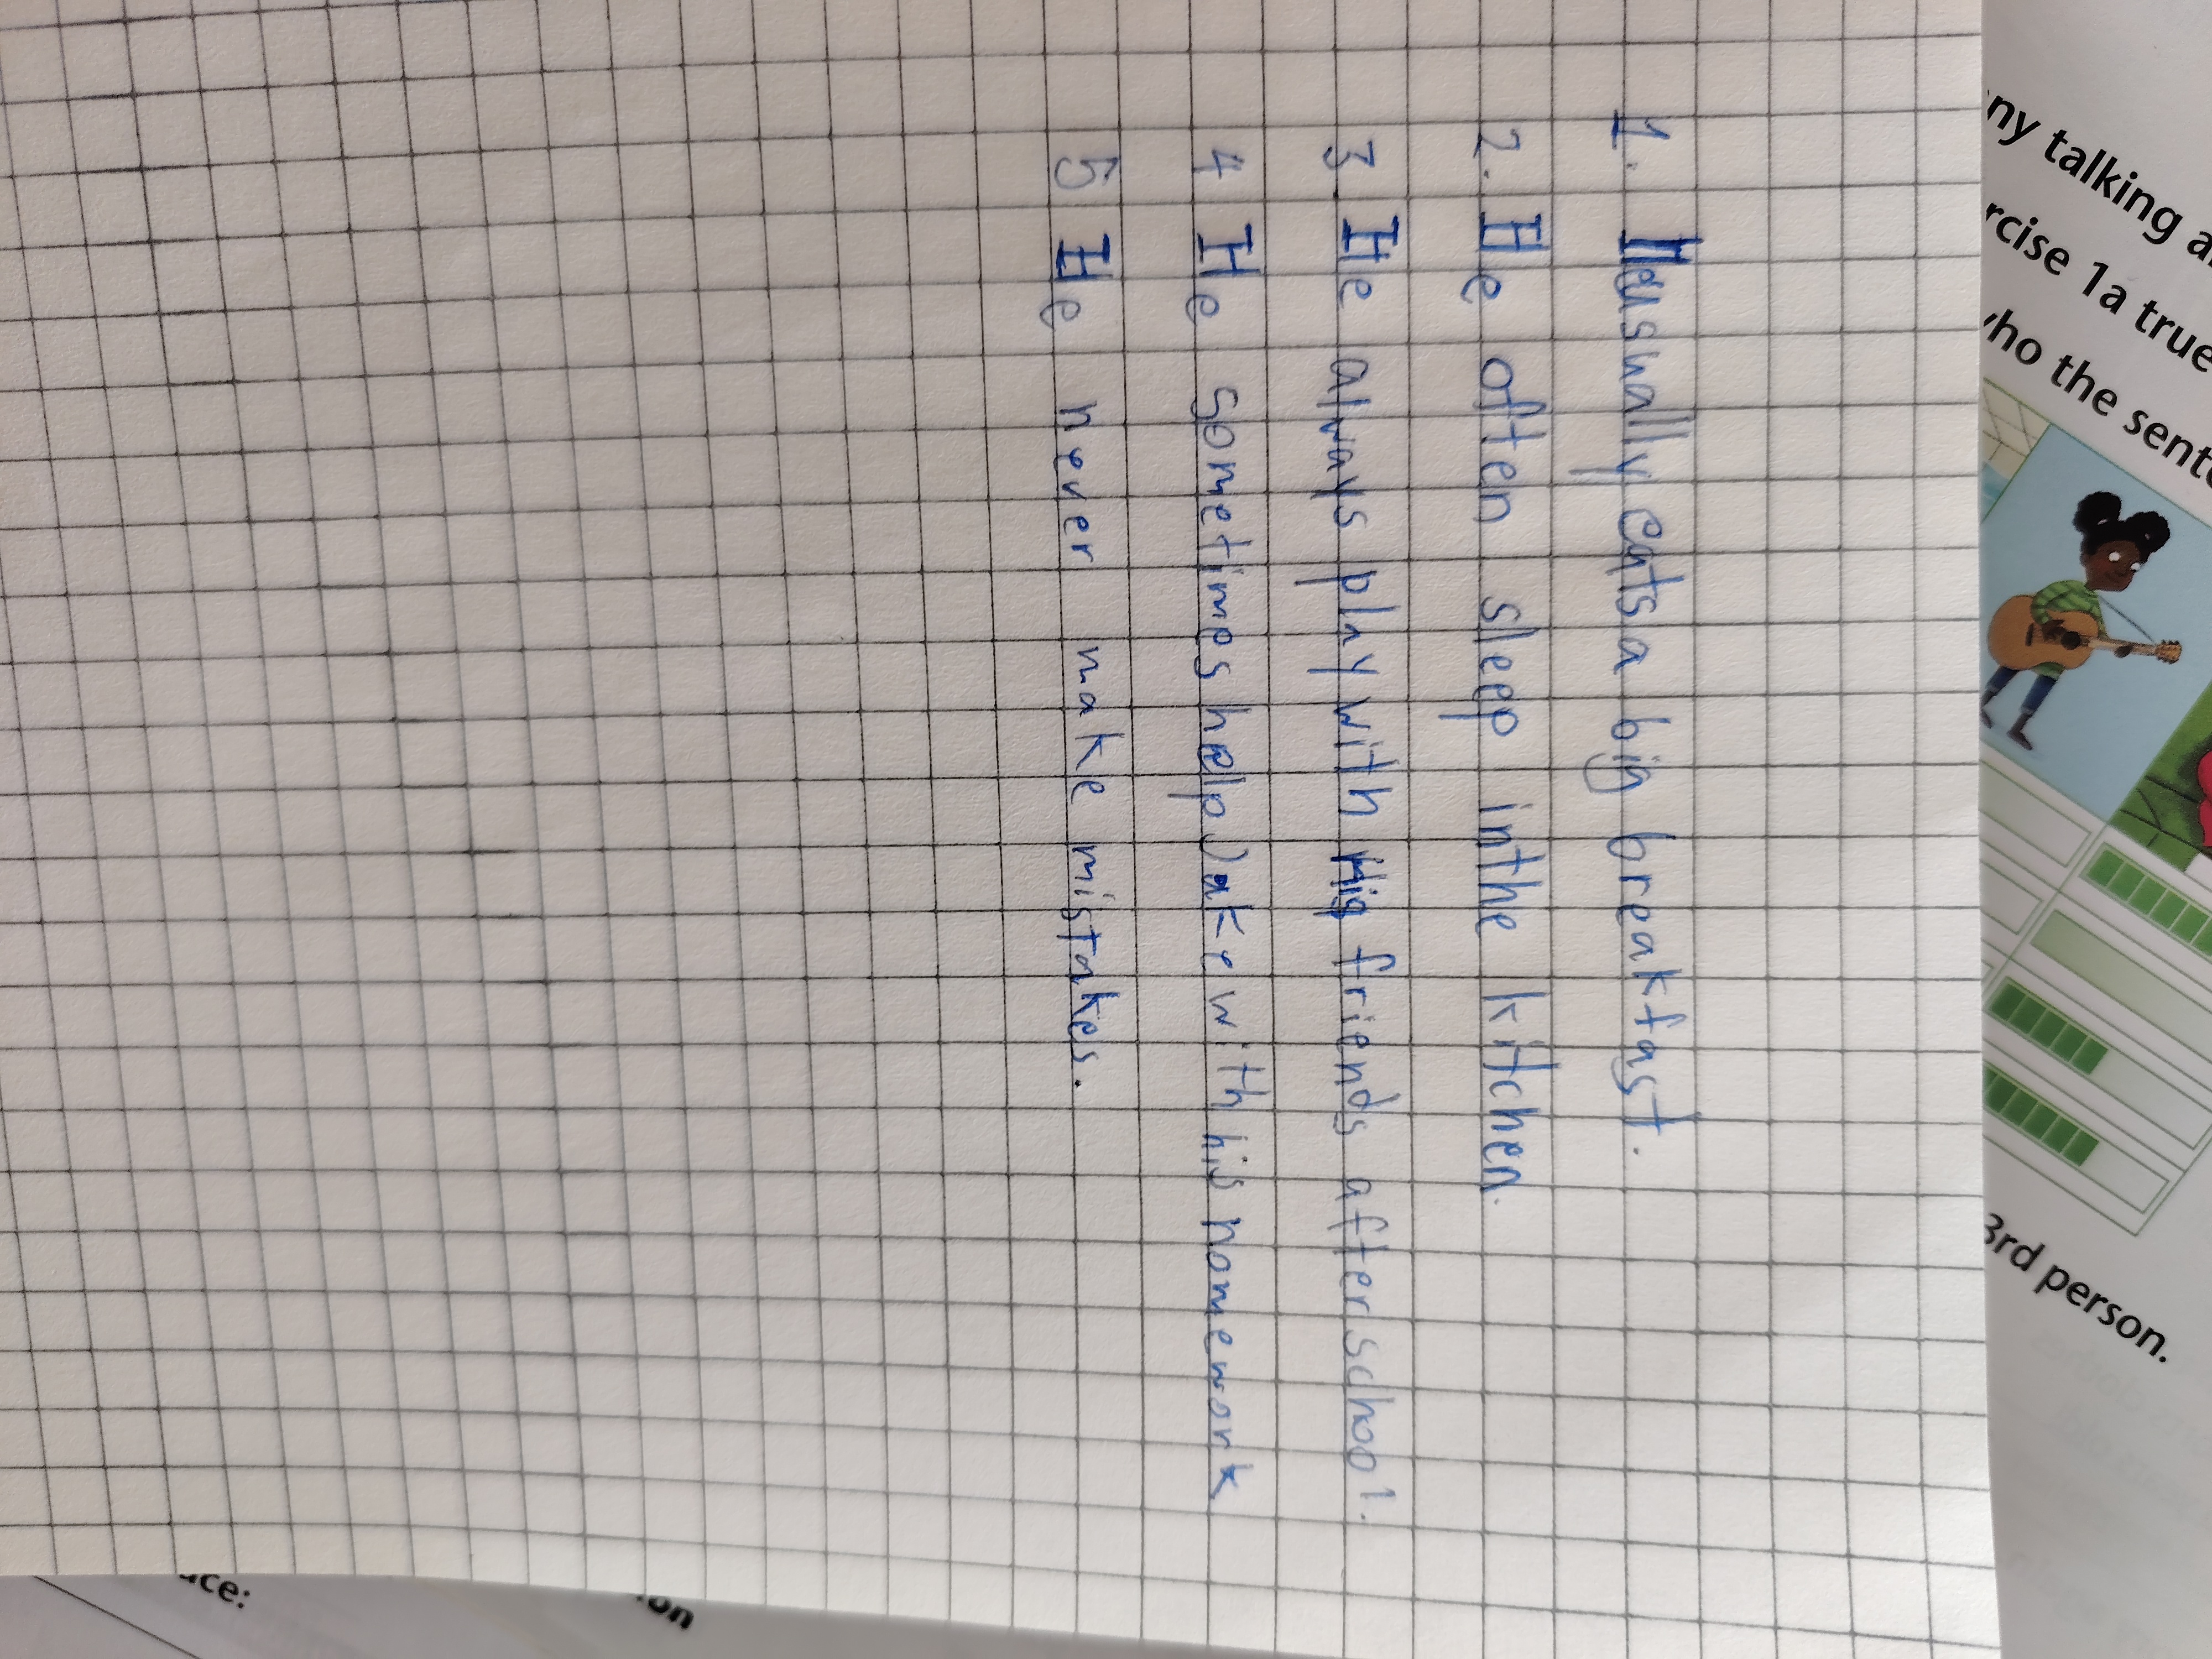 1. He usually eats a big breakfast.
2. He often sleep in the kitchen.
3. He always play with his friends after school.
4 He sometimes help Jake with his homework
5 He never make mistakes.
ny talking a
rcise 1a true
ho the sent
3rd person.
ace:
on